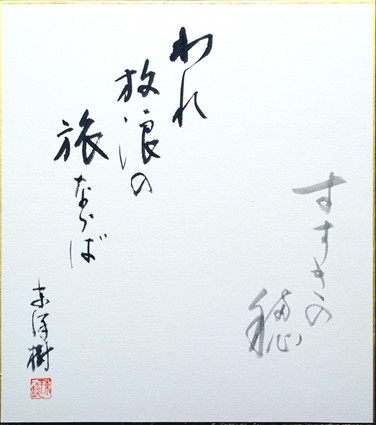 すすきの
穂
われ
放浪の
旅ならば